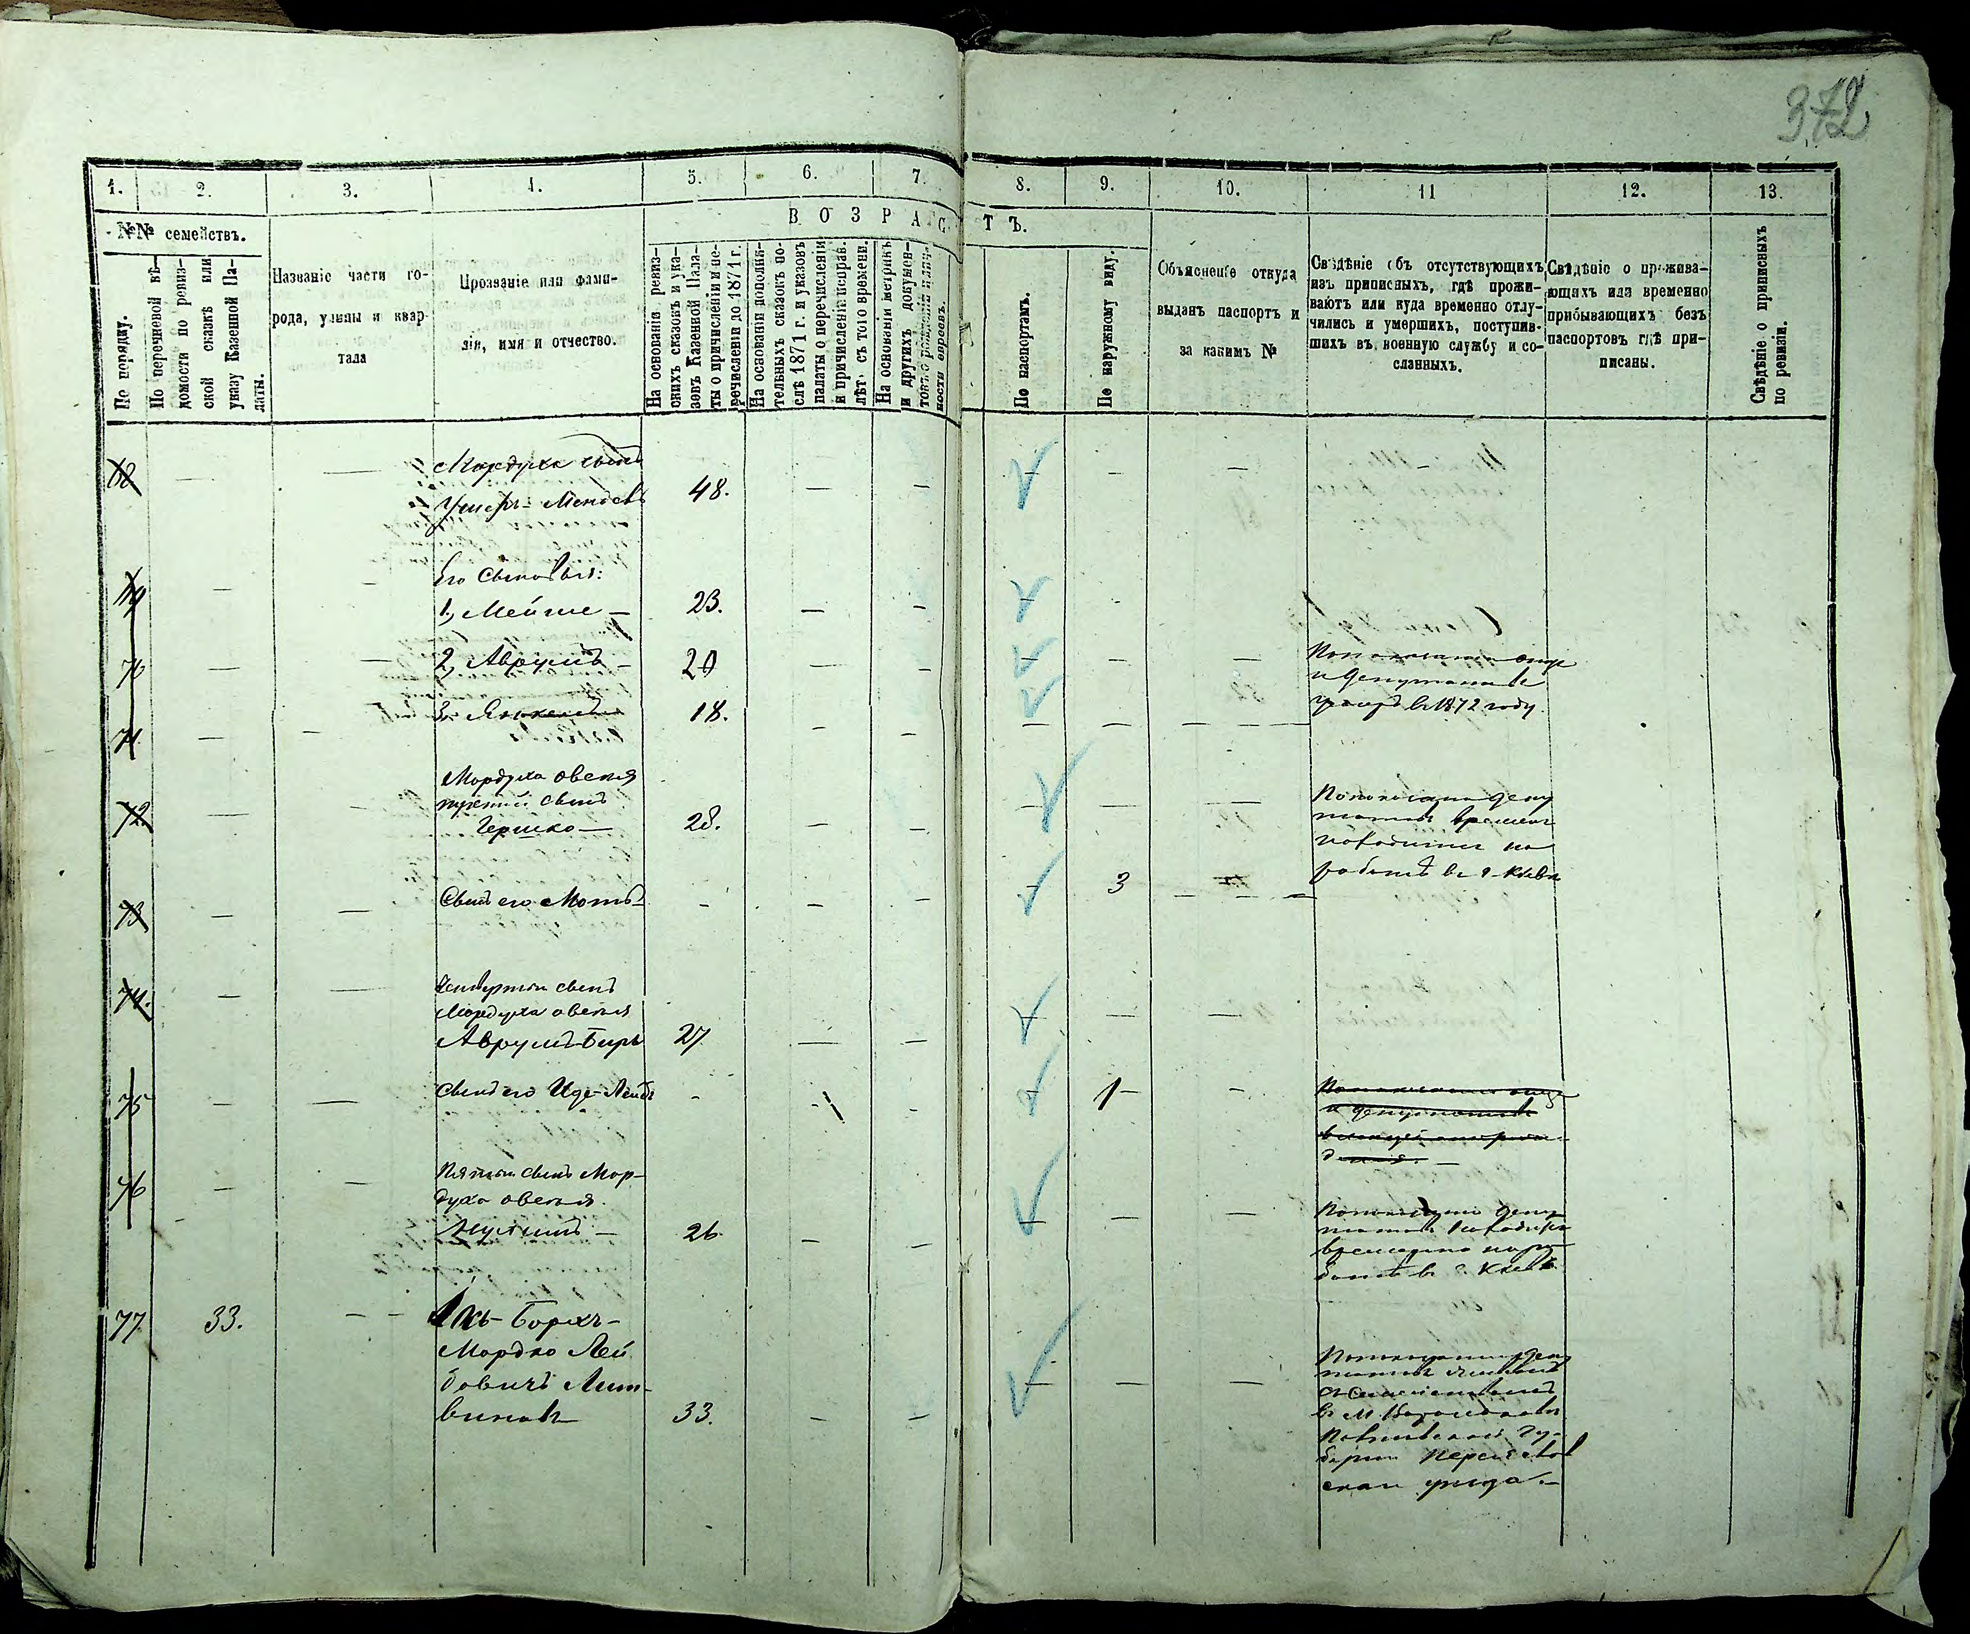 372
1. 2. 3. 4. 5. 6. 7. 8. 9. 10. 11 12. 13.
№№ семействъ.
В О З Р А С Т Ъ.
По порядку.
По перечневой вѣ-
домости по ревиз-
ской сказкѣ или
указу Казенной Па-
латы.
Названіе части го-
рода, улицы и квар-
тала
Прозваніе или фами-
лія, имя и отчество.
На основаніи ревиз-
скихъ сказокъ и ука-
зовъ Казенной Пала-
ты о причисленіи и пе-
речисленіи до 1871 г.
На основаніи дополни-
тельныхъ сказокъ по-
слѣ 1871 г. и указовъ
палаты о перечисленіи
и причисленіи исправ.
лѣт. съ того времени.
На основаніи метрикъ
и другихъ докумен-
товъ о рожденіи
ности евреевъ.
По паспортамъ.
По наружному виду.
Объясненіе откуда
выданъ паспортъ и
за какимъ №
Свѣдѣніе объ отсутствующихъ
изъ приписныхъ, гдѣ прожи-
ваютъ или куда временно отлу-
чились и умершихъ, поступив-
шихъ въ военную службу и со-
сланныхъ.
Свѣдѣніе о прожива-
ющихъ или временно
прибывающихъ безъ
паспортовъ гдѣ при-
писаны.
Свѣдѣніе о приписныхъ
по ревизіи.
68 — — Мордуха сынъ
Усиеръ-Мендель 48. — — — — —
Его сыновья:
69 — 1, Мейше — 23. — — —
70 — — 2, Аврумъ — 20 — — — — — По показанію отца
и депутатовъ
умеръ въ 1872 году.
71 — — 3, Янкель 18. — — — — —
Мордуха Овсея
третій сынъ
72. — Гершко — 28. — — — — — По показанію депу
татовъ временно
находится на
работѣ въ г. Кіевѣ
73 — — Сынъ его Мотъ — — — — — 3 —
Четвертый сынъ
Мордуха Овсея
74. — — Аврумъ-Беръ 27 — — — — —
75 — — Сынъ его Иде-Лейбъ — — — — 1 — — По показанію отца
и депутатовъ
Пятый сынъ Мор-
духа Овсея.
76 — — 26. — — — — — По показанію депу
татовъ находится
временно на ра-
ботѣ въ г. Кіевѣ
77 33. — — Ицъ-Борхъ-
Мордко Лей
бовичъ Лит-
виновъ 33. — — — — — По показанію депу
татовъ
съ семействомъ
въ м.
Полтавской Гу-
берніи Переяслов
скаго уѣзда. —